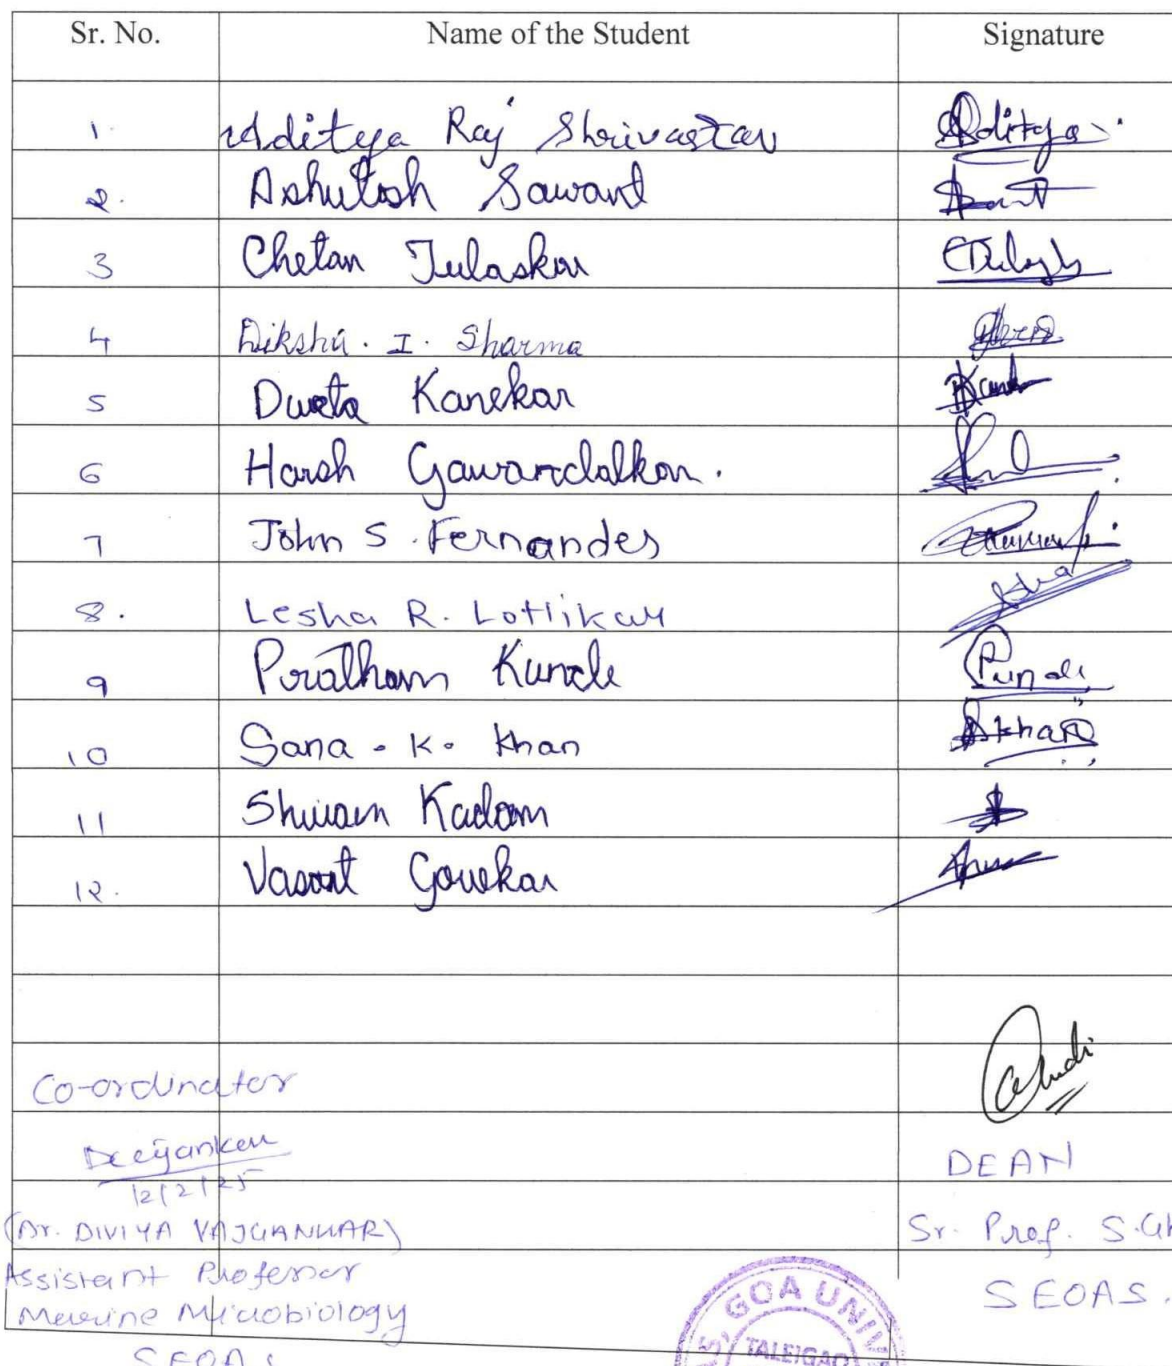 Sr. No. Name of the Student Signature
1. Aditya Raj Shrivastav Aditya
2. Ashutosh Sawant
3 Chetan Tulaskar
4 Diksha. I. Sharma
5 Dweta Kanekar
6 Harsh Gawandalkar.
7 John S. Fernandes
8. Lesha R. Lotlikar
9 Pratham Kunde
10 Sana. K. Khan Skhan
11 Shivam Kadam
12. Vasant Gowekar
Co-ordinator
12/2/25
DEAN
(Dr. DIVIYA VAJGANKAR) Sr. Prof. S.
Assistant Professor
Marine Microbiology SEOAS.
SEOAS
GOA UNIV
TALEIGAO